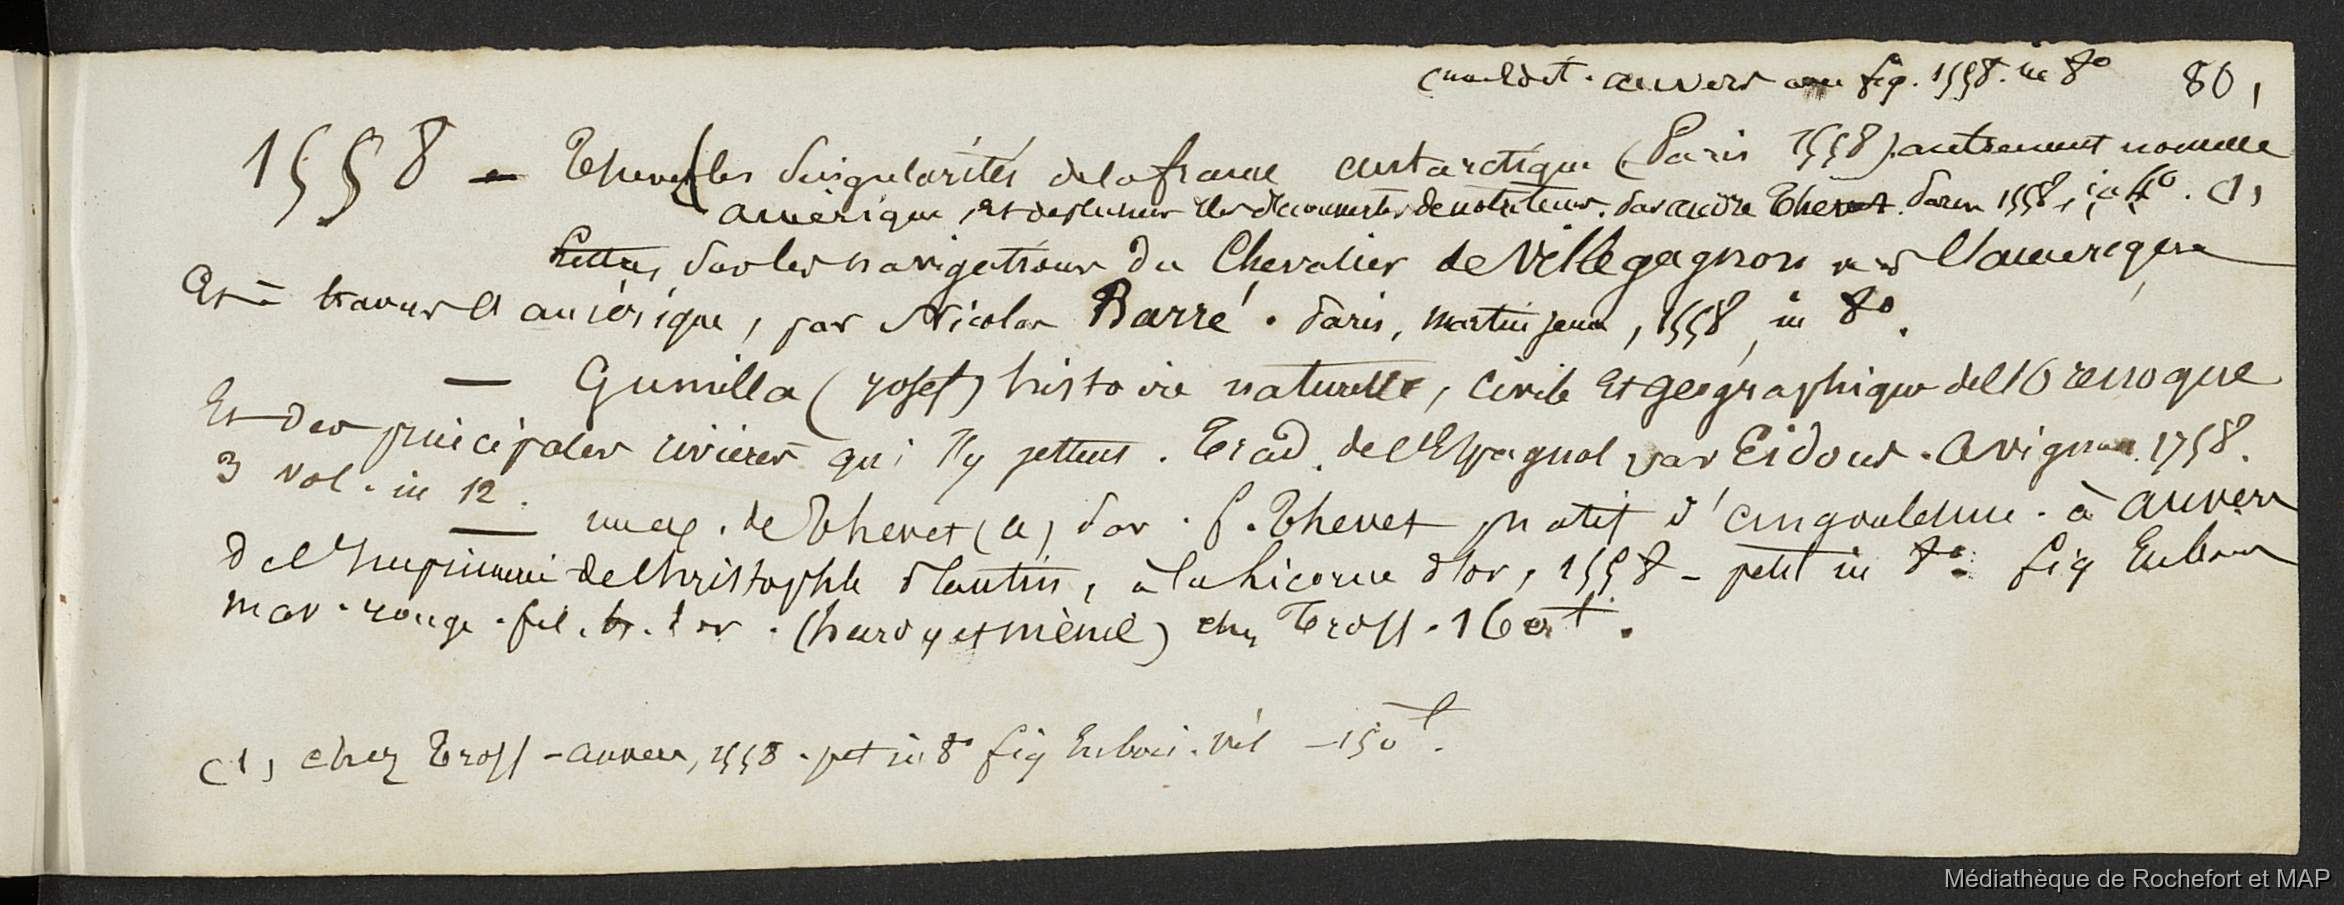 édit. anvers fig. 1558. in 8° 80,
1558 — Thevet les singularités de la france antarctique (Paris 1558) autrement nommée
amérique, et de plusieurs des découvertes de notre temps. par andré Thevet. Paris 1558, in 4°. (1)
Lettres sur les navigations du Chevalier de Villegagnon l'amérique
Et travers l'amérique, par Nicolas Barré. Paris, martin jeune, 1558, in 8°.
— Gumilla (Josef) histoire naturelle, civile et géographique de l'Orenoque
Et des principales rivières qui s'y jettent. Trad. de l'Espagnol par Eidous. Avignon 1758.
3 vol. in 12.
— de Thevet (a) par. f. Thevet, natif d'angoulesme. à anvers
de l'Imprimerie de Christophle Plantin, à la Licorne d'or, 1558 – petit in 8°. fig En bois
mar. rouge. fil. tr. d or. (hardy et mènil) chez Tross. 160 f.
(1) chez Tross – anvers, 1558. pet in 8° fig En bois. vél – 150 f.
Médiathèque de Rochefort et MAP